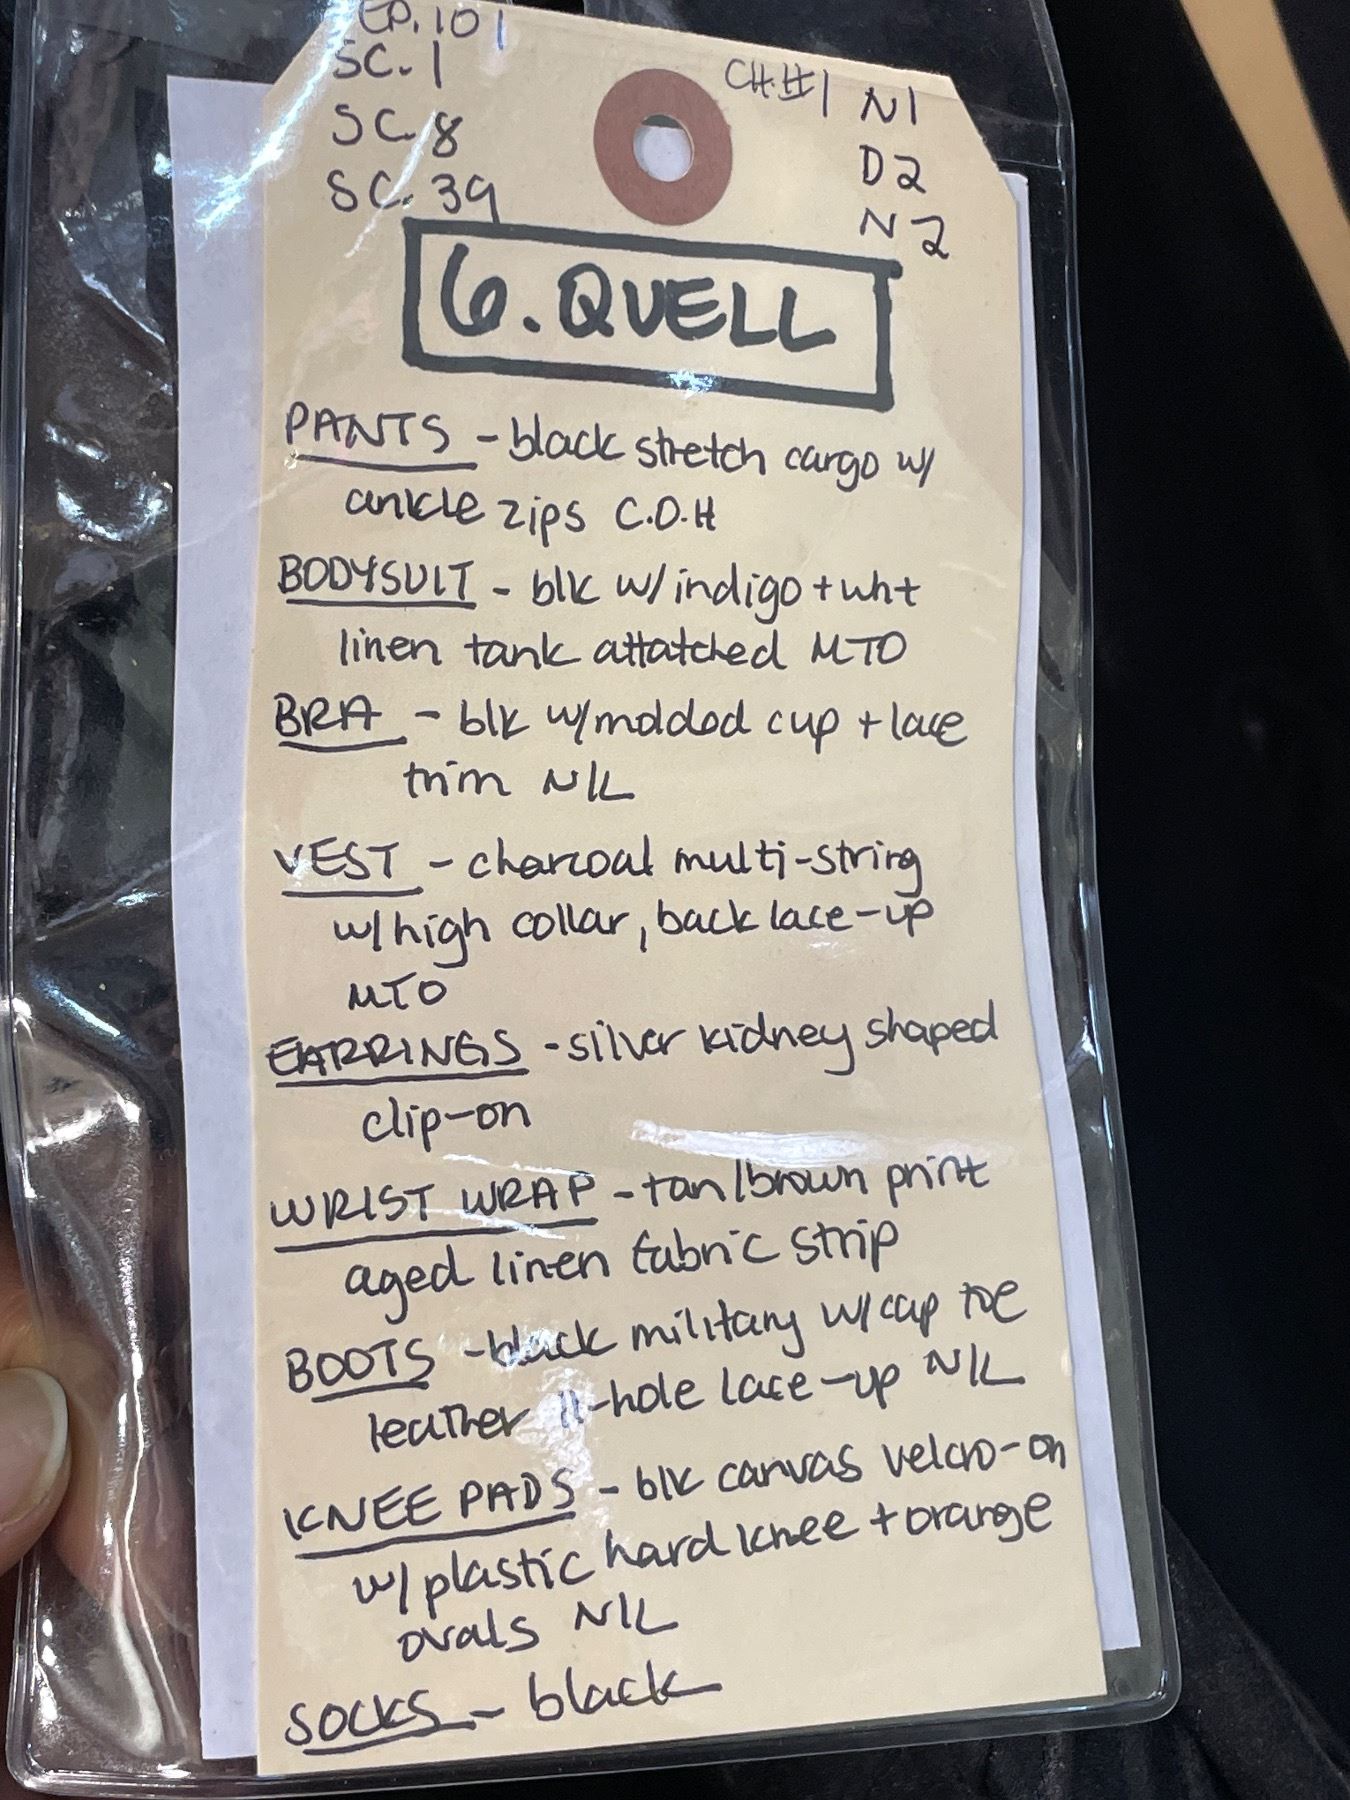 EP. 101
SC. 1
SC. 8
SC. 39
CH#1 N1
D2
N2
6. QUELL
PANTS - black stretch cargo w/
ankle zips C.O.H
BODYSUIT - blk w/ indigo + wht
linen tank attatched MTO
BRA - blk w/ molded cup + lace
trim N/L
VEST - charcoal multi-string
w/ high collar, back lace-up
MTO
EARRINGS - silver kidney shaped
clip-on
WRIST WRAP - tan/brown print
aged linen fabric strip
BOOTS - black military w/ cap toe
leather 11-hole lace-up N/L
KNEE PADS - blk canvas velcro-on
w/ plastic hard knee + orange
ovals N/L
SOCKS - black